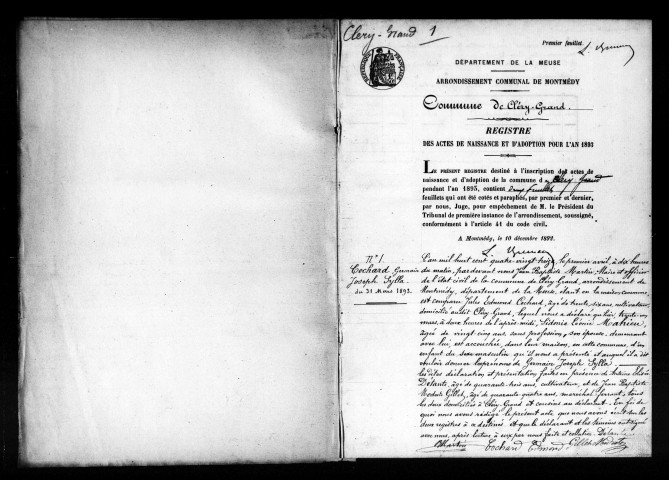 Cléry-Grand 1
Premier feuillet.
DÉPARTEMENT DE LA MEUSE
ARRONDISSEMENT COMMUNAL DE MONTMÉDY
Commune de Cléry-Grand.
REGISTRE
DES ACTES DE NAISSANCE ET D'ADOPTION POUR L'AN 1893
LE PRÉSENT REGISTRE destiné à l'inscription des actes de
naissance et d'adoption de la commune de Cléry-Grand
pendant l'an 1893, contient deux feuillets
feuillets qui ont été cotés et paraphés, par premier et dernier,
par nous, Juge, pour empêchement de M. le Président du
Tribunal de première instance de l'arrondissement, soussigné,
conformément à l'article 41 du code civil.
A Montmédy, le 10 décembre 1892.
N° 1.
Cochard Germain
Joseph Sylla
du 31 Mars 1893.
L'an mil huit cent quatre-vingt treize, le premier avril, à dix heures
du matin, par devant nous Jean Baptiste Martin, Maire et officier
de l'état civil de la commune de Cléry-Grand, arrondissement de
Montmédy, département de la Meuse, étant en la maison commune,
est comparu Jules Edmond Cochard, âgé de trente six ans, cultivateur,
domicilié audit Cléry-Grand, lequel nous a déclaré qu'hier, trente-un
mars, à deux heures de l'après-midi, Sidonie Léonie Mathieu,
âgée de vingt-cinq ans, sans profession, son épouse, demeurant
avec lui, est accouchée, dans leur maison, en cette commune, d'un
enfant du sexe masculin qu'il nous a présenté et auquel il a dit
vouloir donner les prénoms de Germain Joseph Sylla;
lesdites déclaration et présentation faites en présence de
Delante, âgé de quarante-trois ans, cultivateur, et de Jean Baptiste
Modeste Gillet, âgé de quarante quatre ans, maréchal ferrant, tous
les deux domiciliés à Cléry-Grand et cousins au déclarant. En foi de
quoi nous avons rédigé le présent acte, que nous avons inscrit sur les
deux registres à ce destinés. Et après le déclarant et les témoins ont signé
avec nous, après lecture à eux par nous faite et collation. Delante
JBMartin Cochard Edmond Gillet Modeste